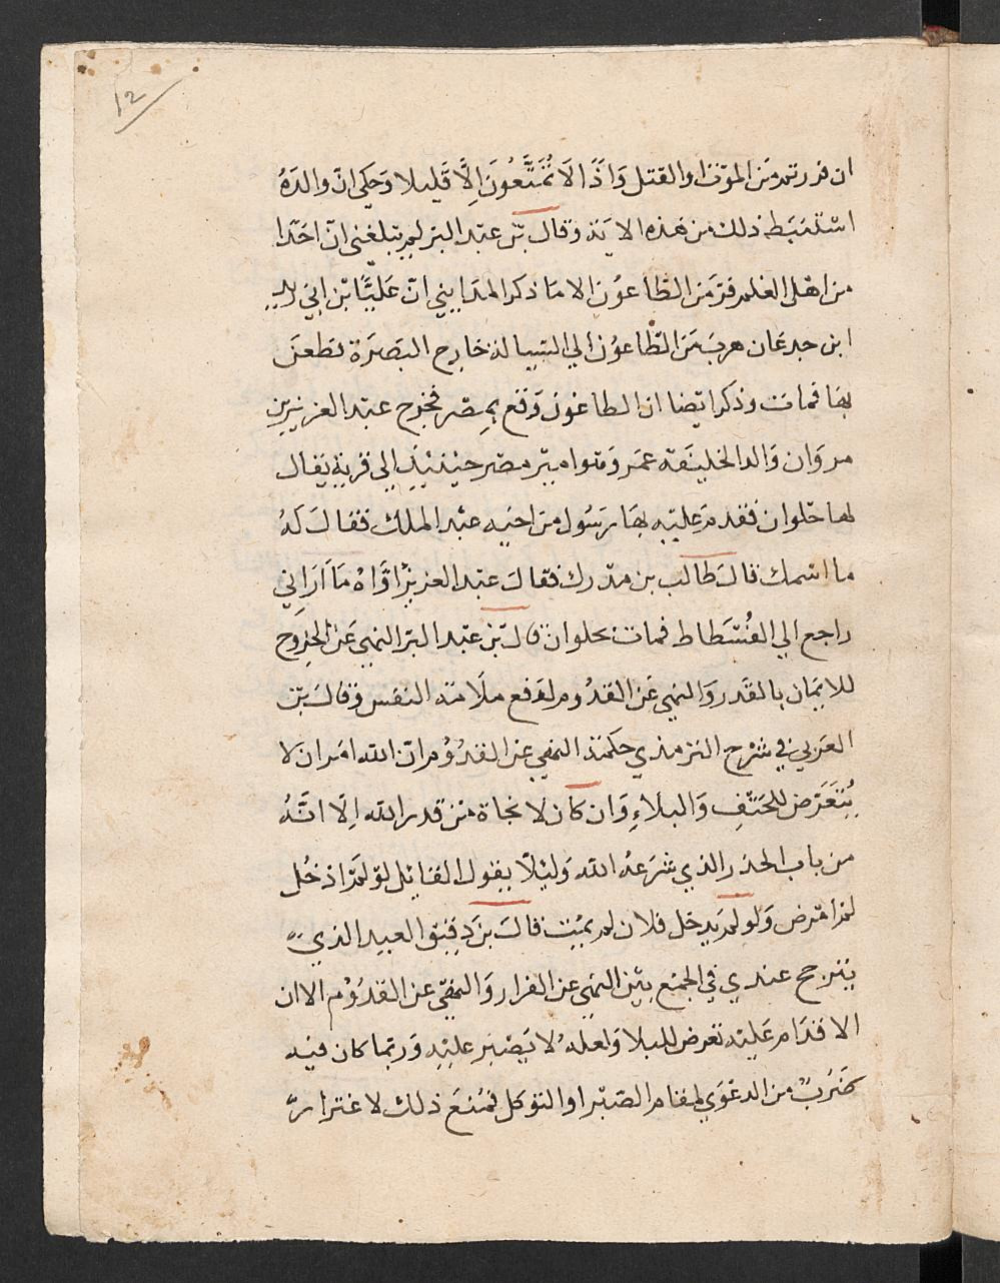 12
ان فررتم من الموت او القتل وَاذًا لاَ تُمَتَّعُونَ اِلَّا قَليلا وَحكى انّ والدَهُ
اسْتَنبَط ذلك من هَذه الايَة وقال بْن عبْد البَر لم يبلغني انّ احَدًا
من اهْل العلم فرّ مَن الطّاعوُن الا مَا ذكر المدَايني انّ عَليًّا بْن ابي زيد
ابن جدعَان هربَ مَن الطّاعوُن الي السيالة خارج البَصرَة فطعنَ
بهَا فمات وذكر ايضا ان الطاعون وَقع بمِصْر فخرج عبْد العزيز بن
مروَان وَالد الخليفَة عمَر وَهوا ميْر مصْر حيْنئيْذٍ الي قريةٍ يقال
لها حلوان فقدمَ عَليْه بهَا رسَول من اخيْه عبْد الملك فقالَ لَهُ
ما اسْمك قالَ طَالب بن مدْرك فقالَ عبْد العزيْز اوَّاهْ مَا اَرَاني
راجع الي الفُسْطاط فمات بحلوان قالَ بْن عبْد البَر النهي عَن الخروج
للايمَان بالقَدر وَالنهي عَن القدُوم لدَفع ملَامَة النفس وَقالَ بْن
العَربي في شرْح الترمذي حكمَة النهي عن القدُوُم ان الله امَر ان لا
يُتَعَرّض للحَتْفِ وَالبلاءِ وَان كان لا نجاة من قدر الله اِلّا انّهُ
من باب الحذر الذي شرَعهُ الله وَليْلّا يقول القائل لوْ لمْ ادْخُل
لم امْرض وَلو لمْ يَدخل فلان لم يمُت قالَ بن دَقيْق العيد الذي
يترجح عندي في الجمْع بيْن النهي عن الفرار وَالنهي عن القدُوْم الاان
الاقدَام عَليْه تعرض للبلا وَلعلهُ لا يَصْبر عليْهِ وَربّما كان فيْه
ضرَبٌ من الدعْوَي لمقام الصّبْر او التوكل فمُنعَ ذلك لاغترارٍ